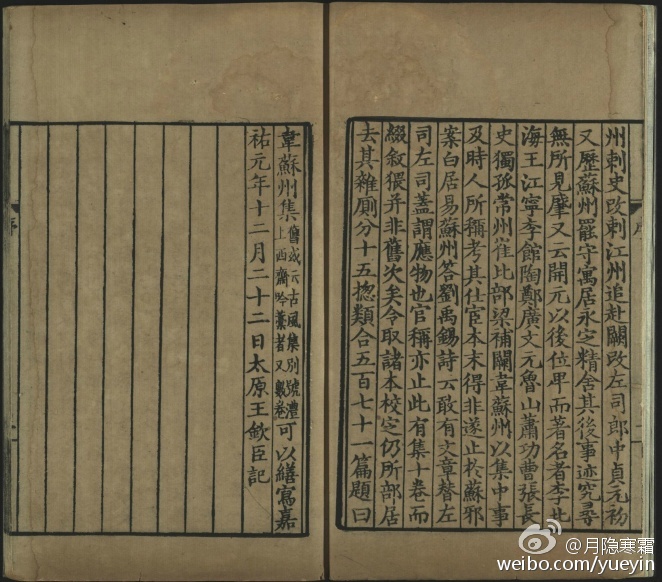 州刺史改刺江州追赴闕改左司郎中貞元初
又歷蘇州罷守寓居永定精舍其後事迹究尋
無所見肇又云開元以後位卑而著名者李北
海王江寧李館陶鄭廣文元魯山蕭功曹張長
史獨孤常州崔比部梁補闕韋蘇州以集中事
及時人所稱考其仕宦本末得非遂止於蘇邪
案白居易蘇州答劉禹錫詩云敢有文章替左
司左司蓋謂應物也官稱亦止此有集十卷而
綴敘猥并非舊次矣今取諸本校定仍所部居
去其雜廁分十五揔類合五百七十一篇題曰
韋蘇州集舊或云古風集別號澧上西齋吟藁者又數卷可以繕寫嘉
祐元年十二月二十二日太原王欽臣記
序
@月隐寒霜
weibo.com/yueyin